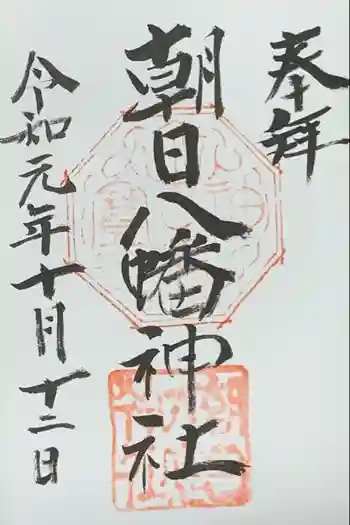 奉拝
朝日八幡神社
令和元年十月十二日